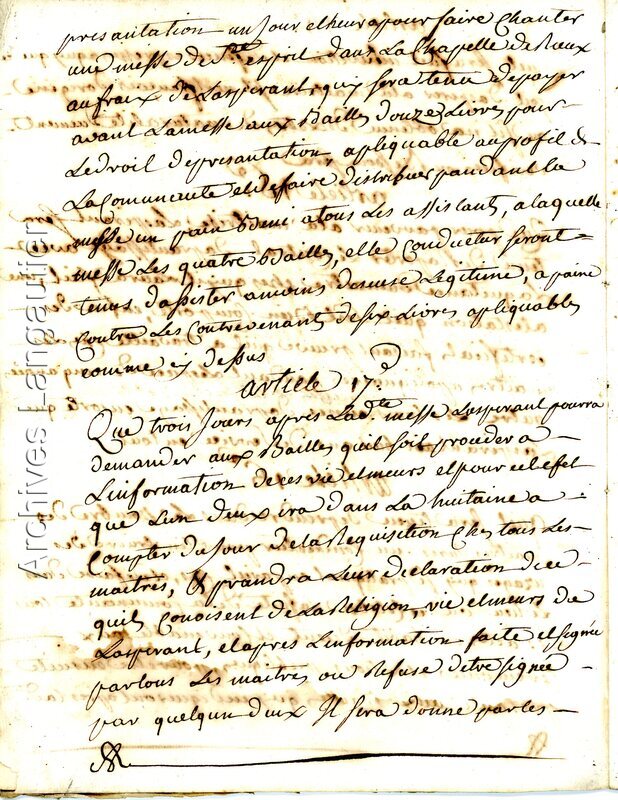 presantation un Jour et heure pour faire Chanter
une messe du St esprit dans La Chapelle de
aux fraix de Laspirant, quy sera tenu de payer
avant La messe aux Bailles douze Livres pour
Le droit de presantation, apliquable au profit de
La Comunauté et de faire distribuer pandant la
messe un pain Beni a tous Les assistants, a laquelle
messe Les quatre Bailles, et le Conducteur seront
tenus dassister a moins descuse Legitime, a paine
Contre Les Contrevenants de six Livres apliquables
comme cy dessus
article 17e
Que trois Jours apres Lade. messe Laspirant pourra
demander aux Bailles quil soit proceder a
Linformation de ces vie et meurs et pour cet efet
que Lun deux ira dans La huitaine a
Compter du Jour de la Requisition Ches tous Les
maitres, & prandra Leur declaration de ce
quils Conoisent de La Religion, vie et meurs de
Laspirant, et apres Linformation faite et signée
par tous Les maitres ou Refuse detre signée
par quelqun deux Il sera donne par les
Archives Langautier